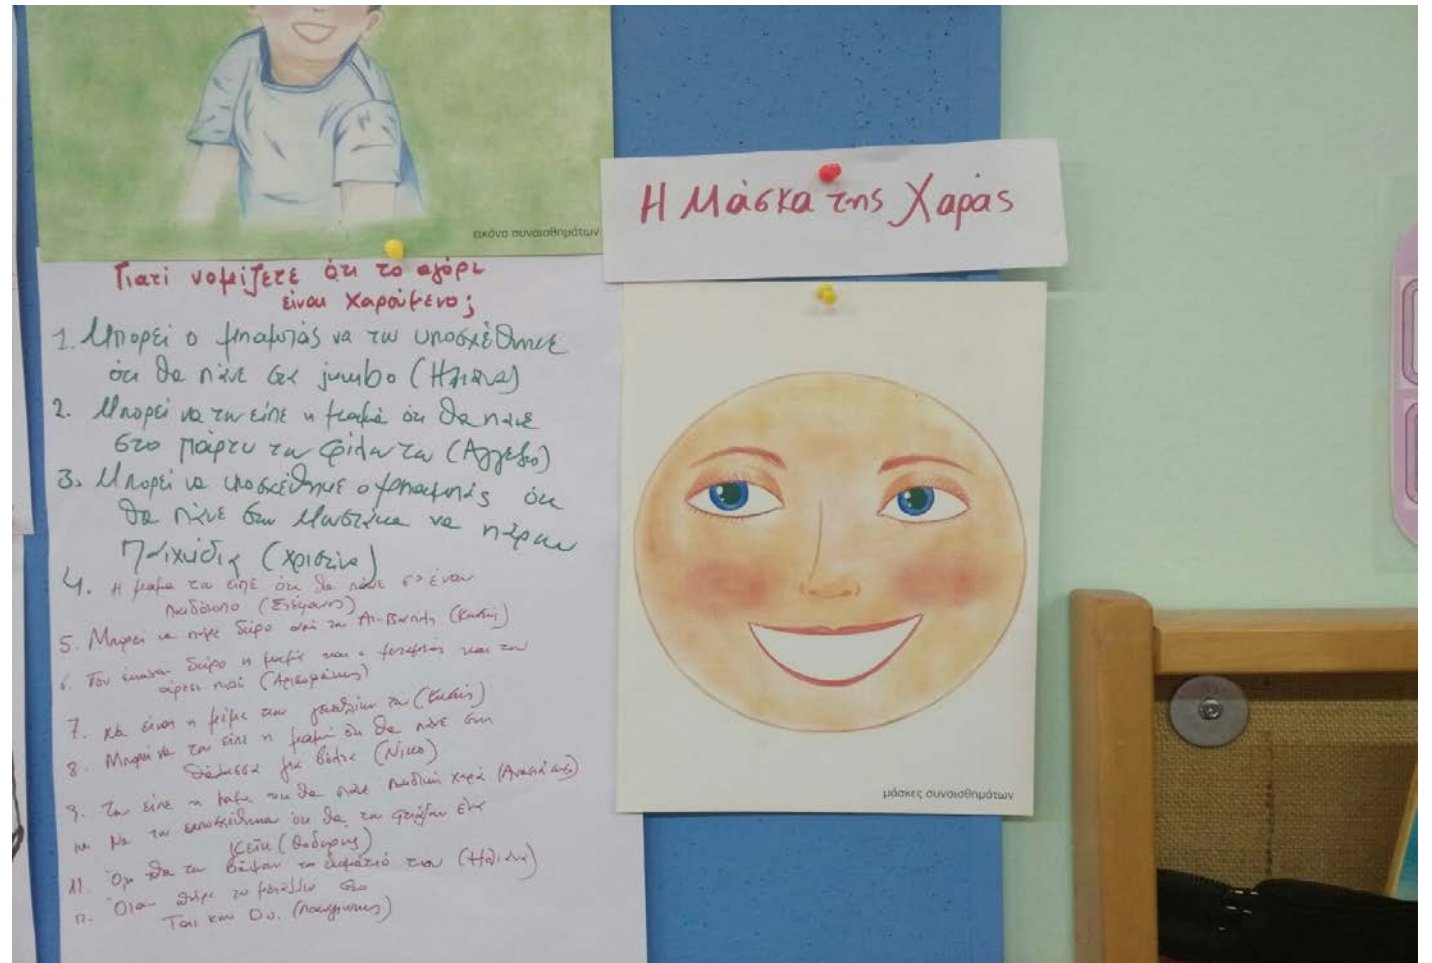 εικόνα συναισθημάτων
Η Μάσκα της Χαράς
Γιατί νομίζετε ότι το αγόρι
είναι χαρούμενο;
1. Μπορεί ο μπαμπάς να του υποσχέθηκε
ότι θα πάνε στα jumbo (Ηλιάνα)
2. Μπορεί να του είπε η μαμά ότι θα πάνε
στο πάρτυ του φίλου του
3. Μπορεί να υποσχέθηκε ο μπαμπάς ότι
θα πάνε στη να πάρουν
παιχνίδια (Χριστίνα)
4. Η μαμά του είπε ότι θα πάνε σ' έναν
παιδότοπο (Στέφανος)
5. Μπορεί να πήρε δώρο από τον Αη-Βασίλη
6. Του έκαναν δώρο η μαμά και ο μπαμπάς και του
άρεσε πολύ
7. Να είναι η μέρα των γενεθλίων του
8. Μπορεί να του είπε η μαμά ότι θα πάνε στη
θάλασσα για βόλτα (Νίκο)
9. Του είπε η μαμά του θα πάνε παιδική χαρά
10. Να του υποσχέθηκαν ότι θα του φτιάξουν ένα
κέικ (Θοδωρής)
11. Ότι θα του βάψουν το δωμάτιό του (Ηλιάνα)
12. Όταν πήρε το μετάλλιο στο
Ταε κβον Ντο.
μάσκες συναισθημάτων